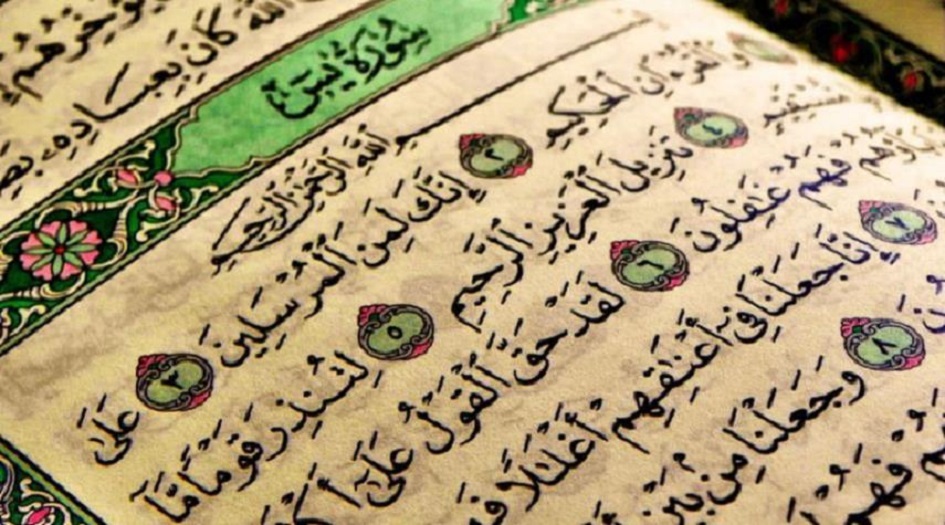 ٱللَّهَ كَانَ بِعِبَادِهِۦ
سُورَةُ يسٓ
ٱللَّهِ ٱلرَّحْمَٰنِ ٱلرَّحِيمِ
وَٱلْقُرْءَانِ ٱلْحَكِيمِ ٢ إِنَّكَ لَمِنَ ٱلْمُرْسَلِينَ ٣ عَلَىٰ
مُّسْتَقِيمٍ ٤ تَنزِيلَ ٱلْعَزِيزِ ٱلرَّحِيمِ ٥ لِتُنذِرَ قَوْمًا مَّآ
فَهُمْ غَٰفِلُونَ ٦ لَقَدْ حَقَّ ٱلْقَوْلُ عَلَىٰٓ
٧ إِنَّا جَعَلْنَا فِىٓ أَعْنَٰقِهِمْ أَغْلَٰلًا
٨ وَجَعَلْنَا مِنۢ بَيْنِ
فَهُمْ